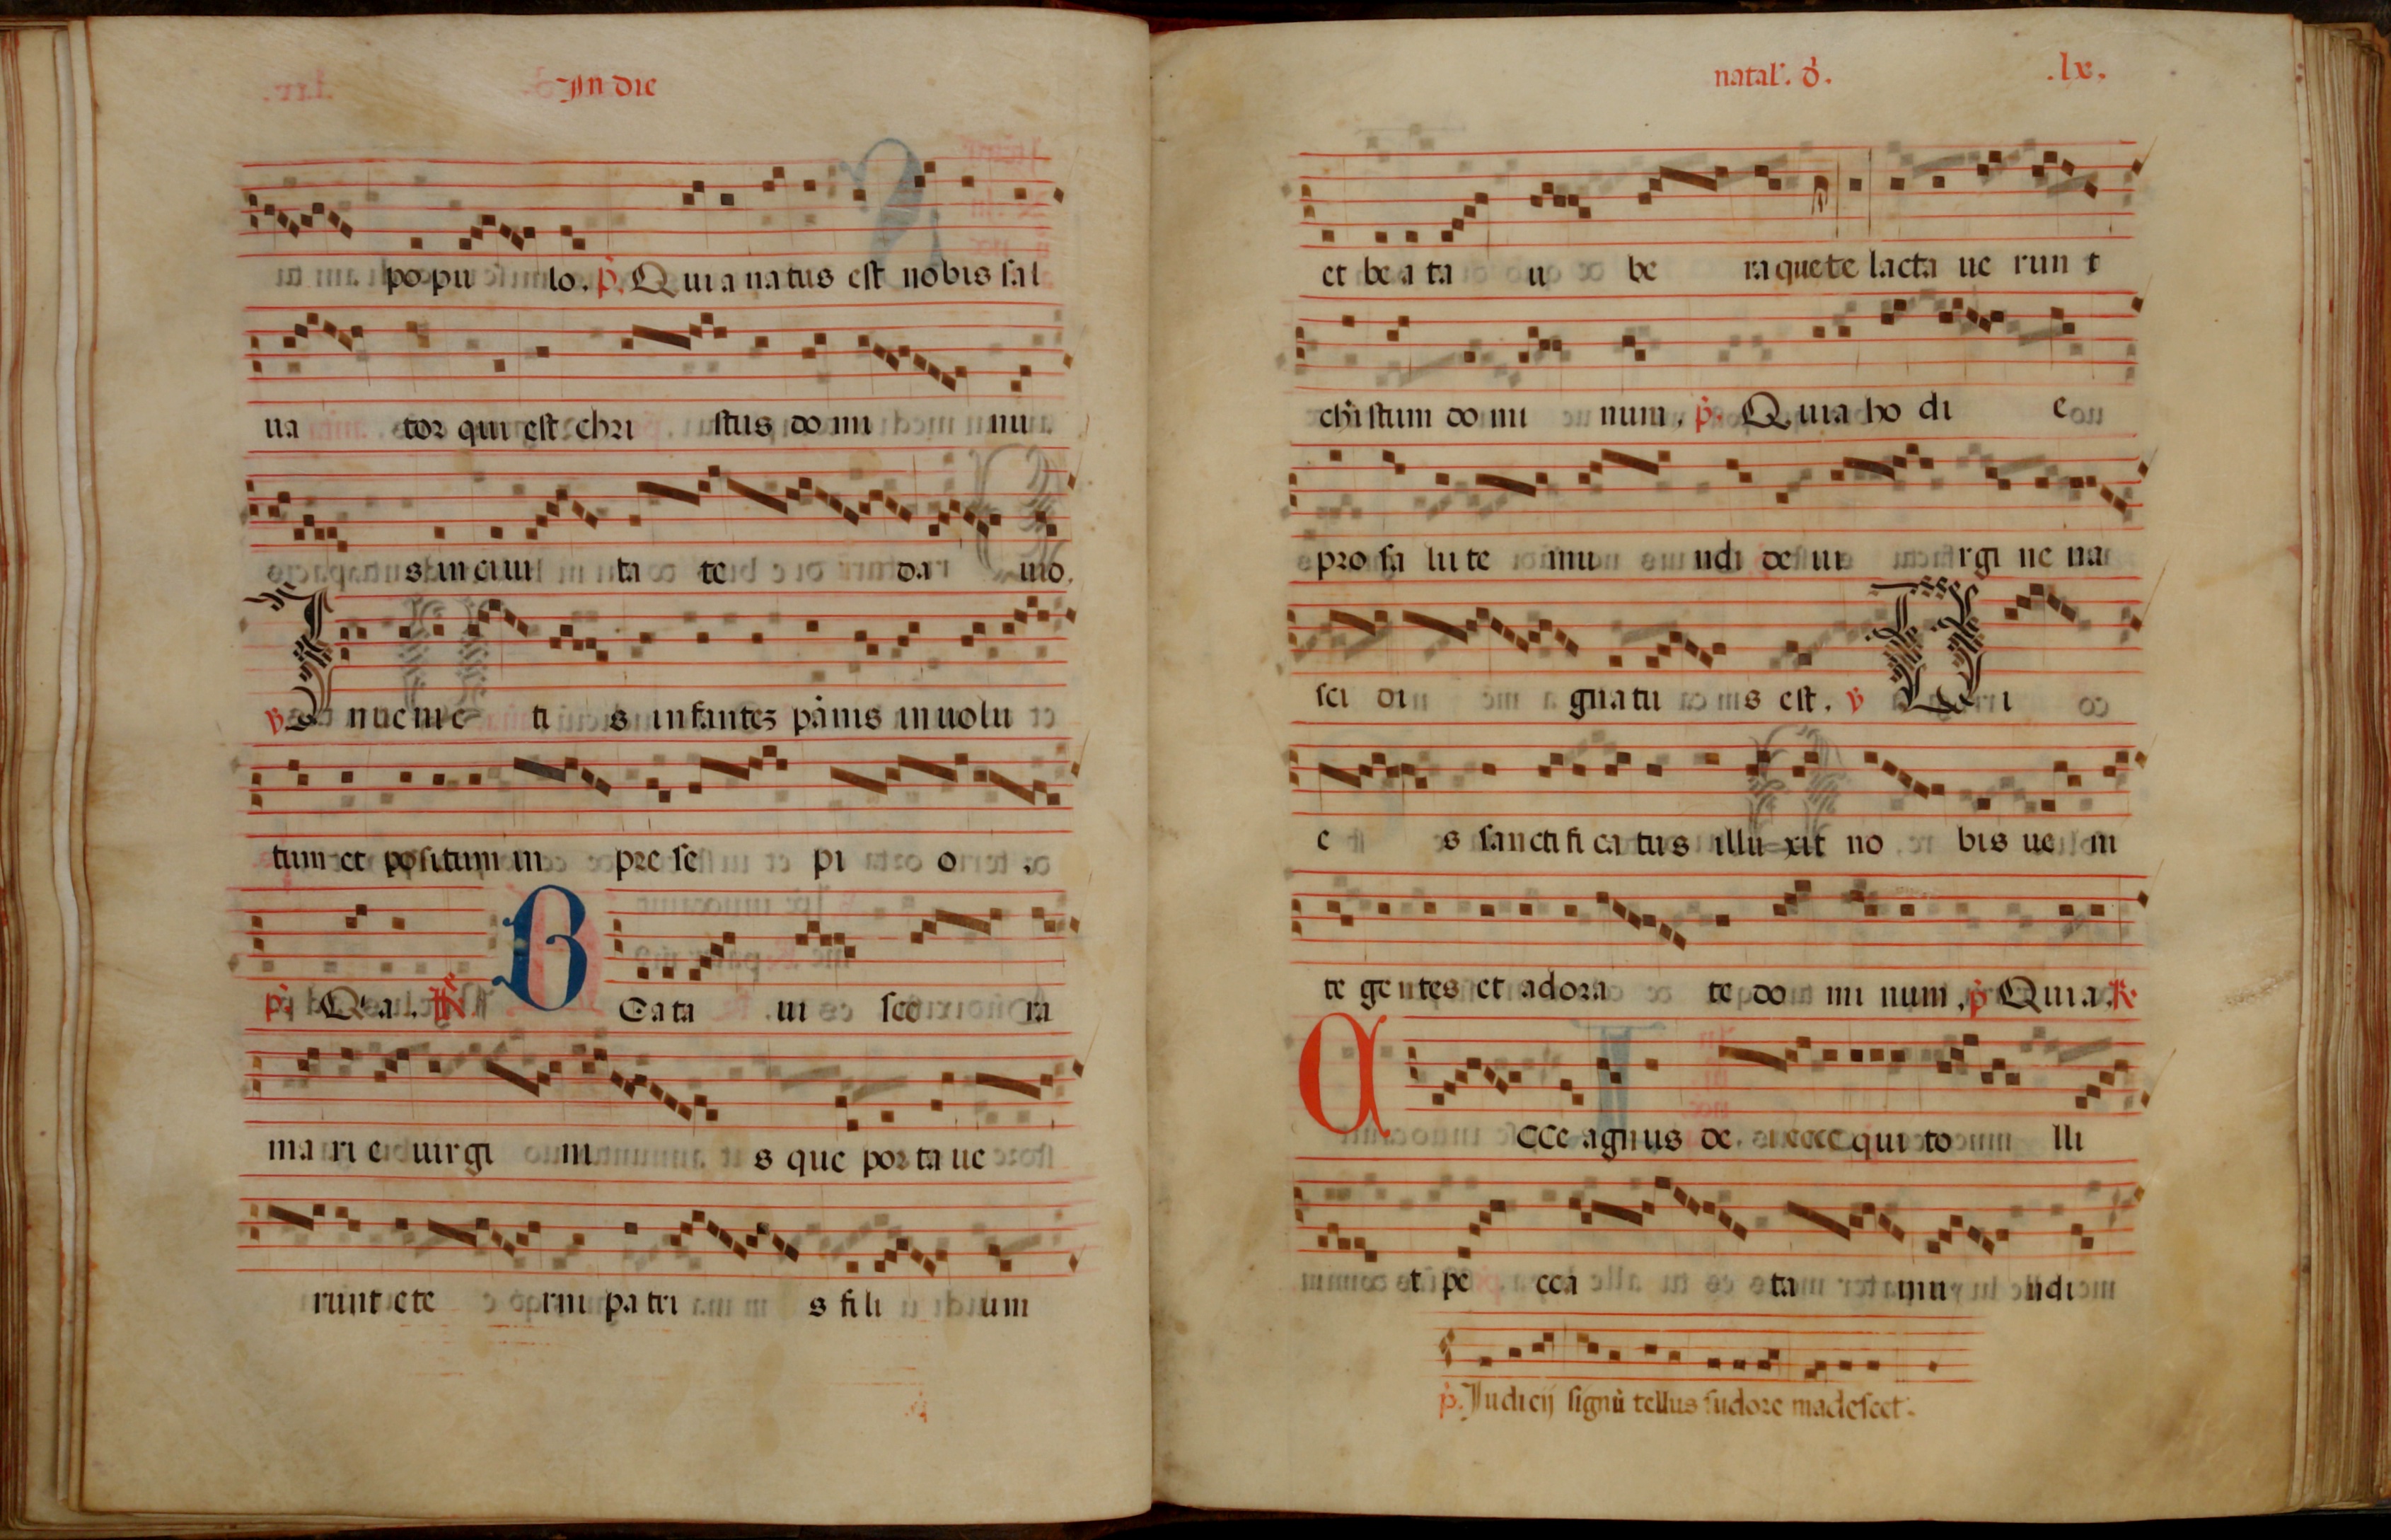 In die
populo. p. Quia natus est nobis sal
uator qui est christus do mi nu
s in ciuitate dauid.
v Inuenietis infantez pānis inuolu
tum et positum in presepio.
p. Qia. R Beata uiscera
marie uirginis que portaue
runt eterni patris filium
natal'. d. .lx.
et beata ubera que te lactauerunt
christum dominum. p. Quia hodie
pro salute mundi de uirgine na
sci dignatus est. v Di
es sanctificatus illuxit nobis ueni
te gentes et adorate dominum. p Quia. R.
Ecce agnus dei ecce qui tolli
t peccata mundi
p. Judicij signū tellus sudore madescet.